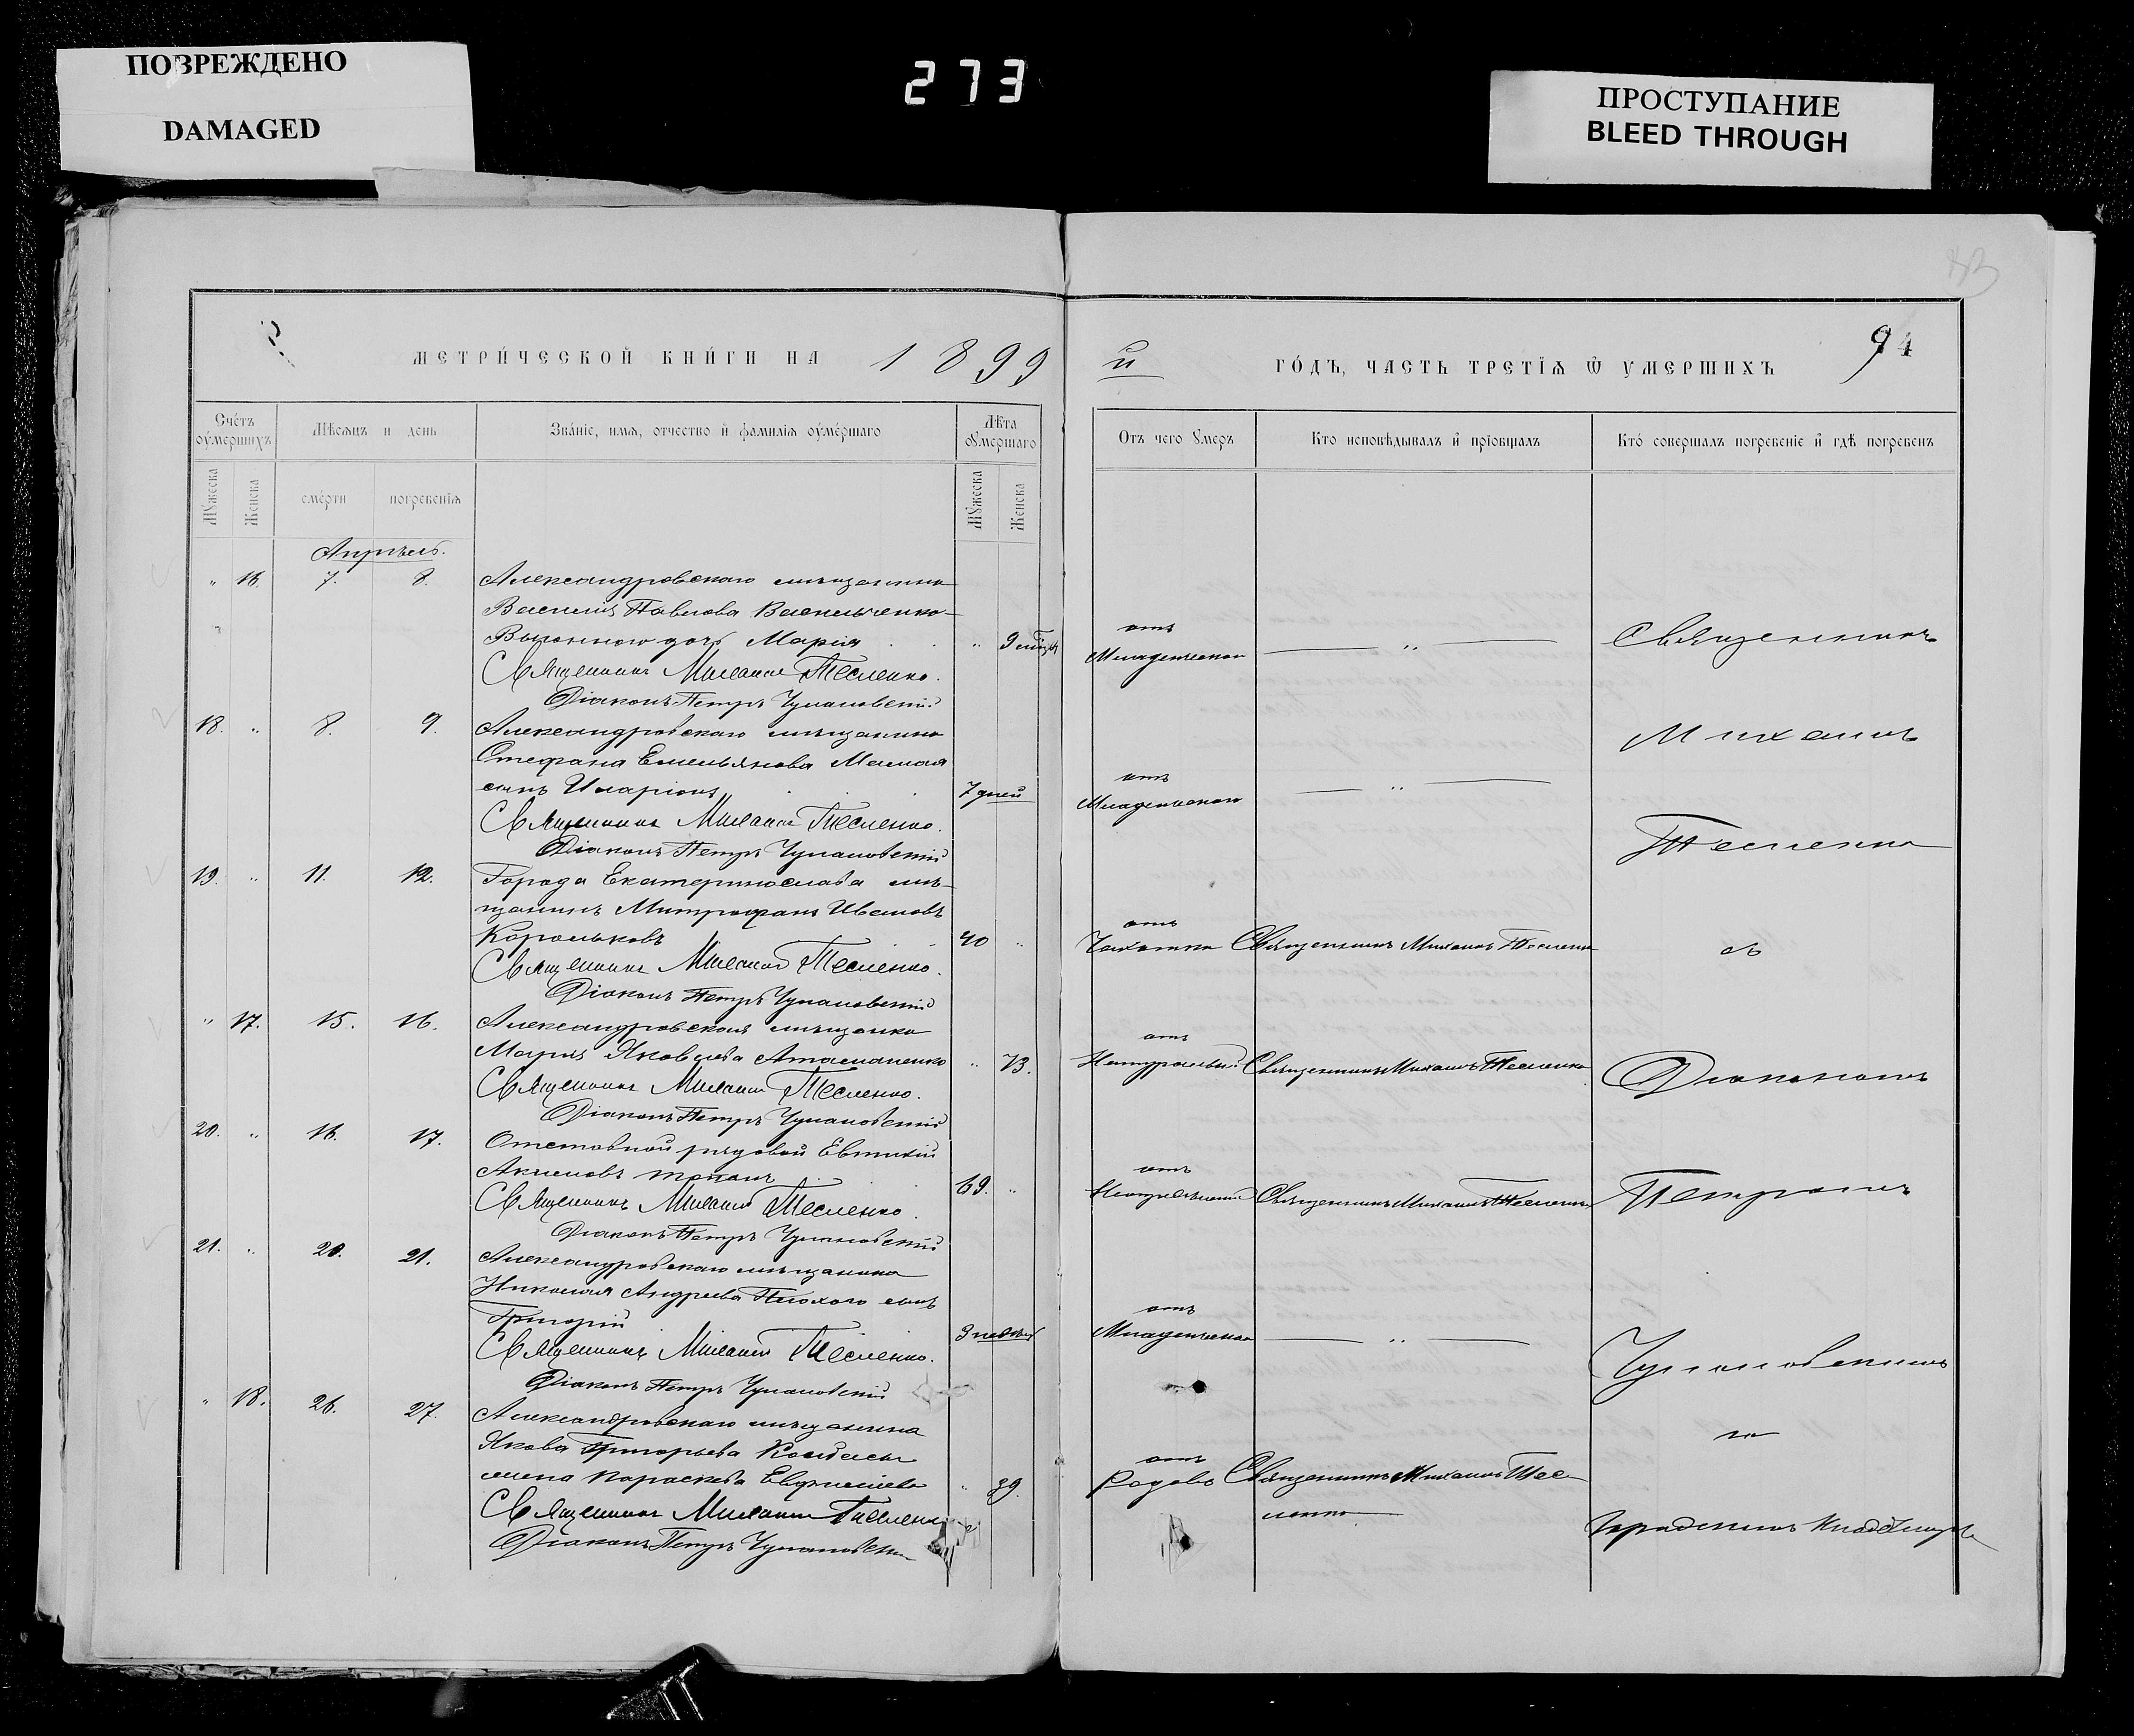 ПОВРЕЖДЕНО
DAMAGED
273
ПРОСТУПАНИЕ
BLEED THROUGH
МЕТРИ́ЧЕСКОЙ КНИ́ГИ НА 1899
й ГО́ДЪ, ЧАСТЬ ТРЕТІѦ Ѿ УМЕРШИХЪ
94
Счетъ оумершихъ
Мѣсяцъ и день
Званіе, имя, отчество и фамилія оумершаго
Лѣта умершаго
Отъ чего умеръ
Кто исповѣдывалъ и пріобщалъ
Кто совершалъ погребеніе и гдѣ погребенъ
Мужеска
Женска
смерти
погребенія
Мужеска
Женска
Апрѣль.
" 16. 7. 8. Александровскаго мѣщанина
Василія Павлова Васильченко-
дочь Марія " 9 мѣсц. отъ Младенческой — " —
Священникъ Михаилъ Тесленко.
Діаконъ Петръ Чумановскій
18. " 8. 9. Александровскаго мѣщанина
Стефана Емельянова
сынъ Иларіонъ 7 дней отъ Младенческой — " —
Священникъ Михаилъ Тесленко.
Діаконъ Петръ Чумановскій
19. " 11. 12. Города Екатеринослава мѣ-
щанинъ Митрофанъ Ивановъ
Корольковъ 40 " отъ Чахотки Священникъ Михаилъ Тесленко
Священникъ Михаилъ Тесленко.
Діаконъ Петръ Чумановскій
" 17. 15. 16. Александровская мѣщанка
Марія Яковлева Атаманенко " 73. отъ Натуральной Священникъ Михаилъ Тесленко
Священникъ Михаилъ Тесленко.
Діаконъ Петръ Чумановскій
20. " 16. 17. Отставной рядовой Евтихій
Акимовъ 69. " отъ Натуральной Священникъ Михаилъ Тесленко
Священникъ Михаилъ Тесленко.
Діаконъ Петръ Чумановскій
21. " 20. 21. Александровскаго мѣщанина
Николая Андреева Плохого сынъ
Григорій 3 недѣл. отъ Младенческой — " —
Священникъ Михаилъ Тесленко.
Діаконъ Петръ Чумановскій
" 18. 26. 27. Александровскаго мѣщанина
Якова Григорьева
жена Параскева Евфимиева " 39. отъ Родовъ Священникъ Михаилъ Тес-
ленко
Священникъ Михаилъ Тесленко
Діаконъ Петръ Чумановскій
Священникъ
Михаилъ
Тесленко
съ
Діакономъ
Петромъ
Чумановскимъ
на
городскомъ кладбищѣ